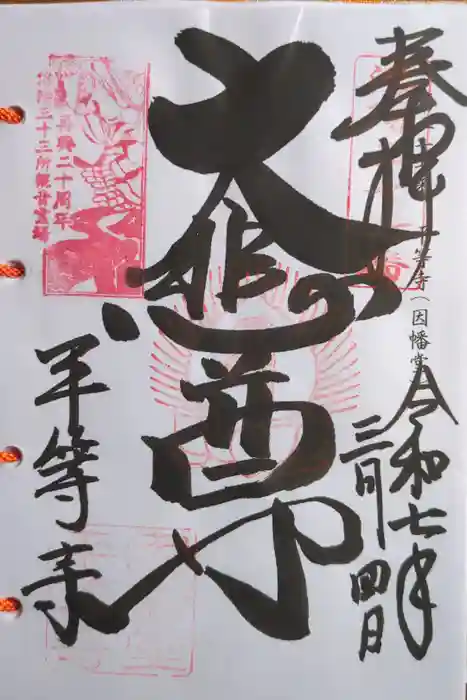 奉拝
平等寺（因幡堂
令和七年
三月四日
大悲尊
再興二十周年
洛陽三十三所観音霊場
平等寺